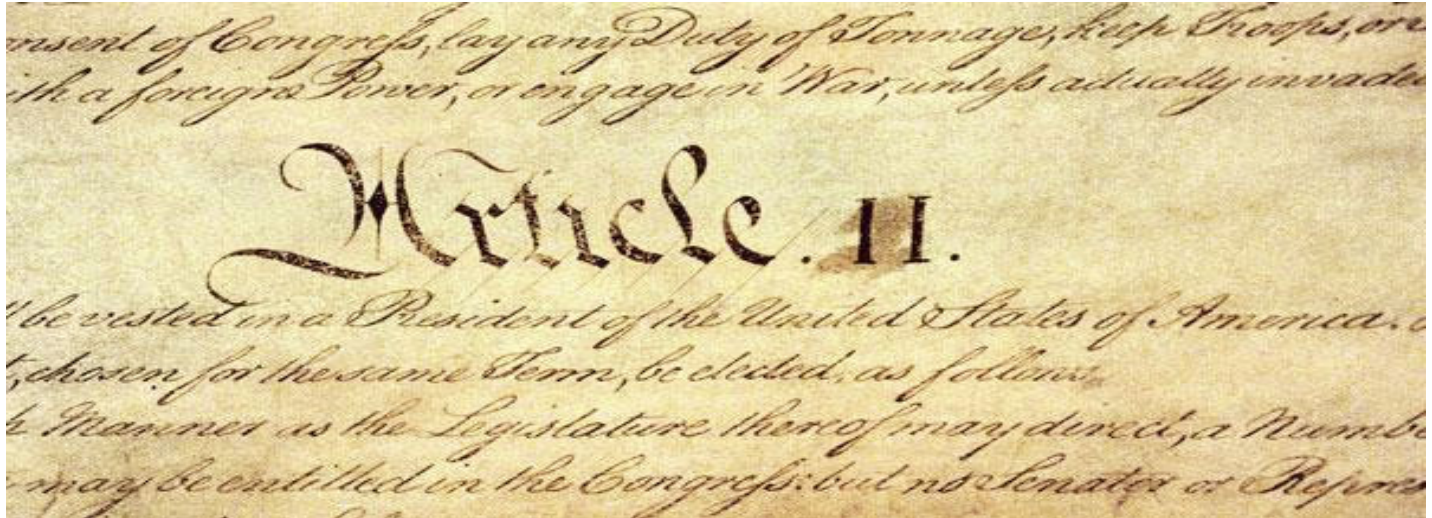 onsent of Congreſs, lay any Duty of Tonnage, keep Troops, or
ith a foreign Power, or engage in War, unleſs actually invade
Article. II.
ll be vested in a President of the United States of America.
t, chosen for the same Term, be elected, as follows
h Manner as the Legislature thereof may direct, a Numbe
may be entitled in the Congreſs: but no Senator or Repres